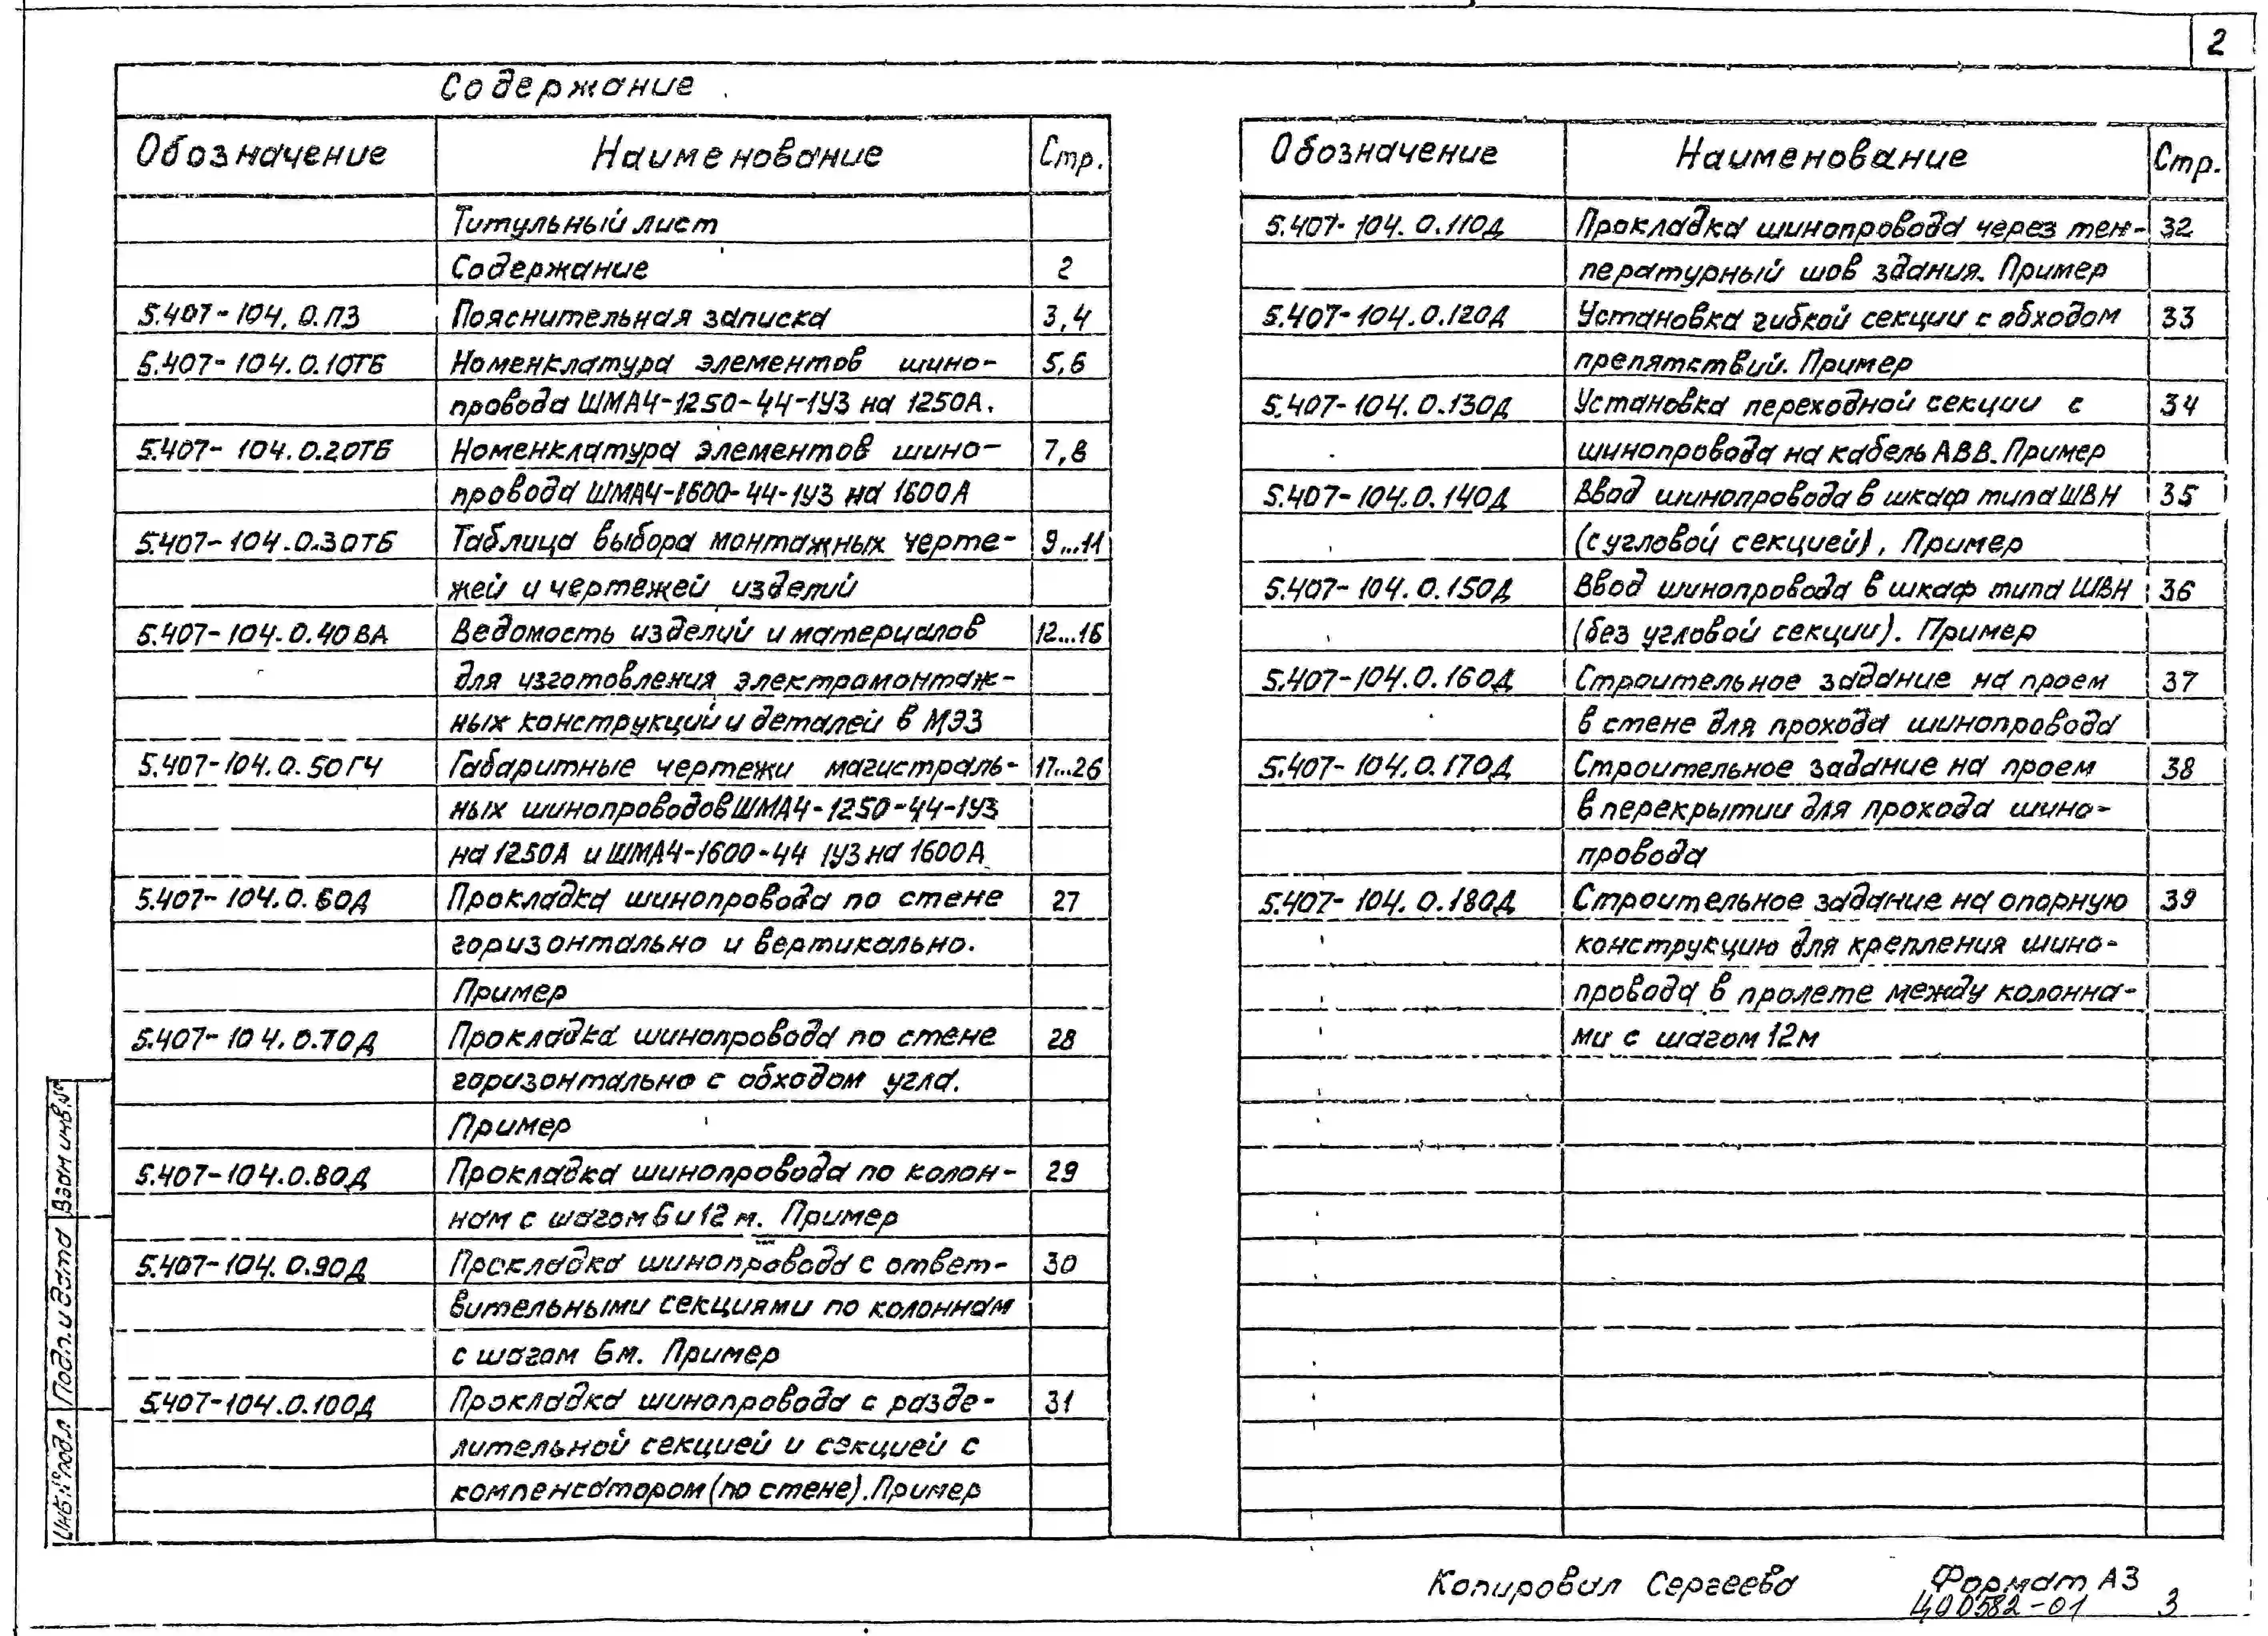 2
Содержание
Обозначение Наименование Стр.
Титульный лист
Содержание 2
5.407-104.0.ПЗ Пояснительная записка 3,4
5.407-104.0.10ТБ Номенклатура элементов шино- 5,6
провода ШМА4-1250-44-1У3 на 1250А.
5.407-104.0.20ТБ Номенклатура элементов шино- 7,8
провода ШМА4-1600-44-1У3 на 1600А
5.407-104.0.30ТБ Таблица выбора монтажных черте- 9...11
жей и чертежей изделий
5.407-104.0.40ВА Ведомость изделий и материалов 12...16
для изготовления электромонтаж-
ных конструкций и деталей в МЭЗ
5.407-104.0.50ГЧ Габаритные чертежи магистраль- 17...26
ных шинопроводов ШМА4-1250-44-1У3
на 1250А и ШМА4-1600-44 1У3 на 1600А
5.407-104.0.60Д Прокладка шинопровода по стене 27
горизонтально и вертикально.
Пример
5.407-104.0.70Д Прокладка шинопровода по стене 28
горизонтально с обходом угла.
Пример
5.407-104.0.80Д Прокладка шинопровода по колон- 29
нам с шагом 6 и 12 м. Пример
5.407-104.0.90Д Прокладка шинопровода с ответ- 30
вительными секциями по колоннам
с шагом 6м. Пример
5.407-104.0.100Д Прокладка шинопровода с разде- 31
лительной секцией и секцией с
компенсатором (по стене). Пример
Обозначение Наименование Стр.
5.407-104.0.110Д Прокладка шинопровода через тем- 32
пературный шов здания. Пример
5.407-104.0.120Д Установка гибкой секции с обходом 33
препятствий. Пример
5.407-104.0.130Д Установка переходной секции с 34
шинопровода на кабель АВВ. Пример
5.407-104.0.140Д Ввод шинопровода в шкаф типа ШВН 35
(с угловой секцией). Пример
5.407-104.0.150Д Ввод шинопровода в шкаф типа ШВН 36
(без угловой секции). Пример
5.407-104.0.160Д Строительное задание на проем 37
в стене для прохода шинопровода
5.407-104.0.170Д Строительное задание на проем 38
в перекрытии для прохода шино-
провода
5.407-104.0.180Д Строительное задание на опорную 39
конструкцию для крепления шино-
провода в пролете между колонна-
ми с шагом 12м
Взам инв.№
Подп. и дата
Инв.№ подл
Копировал Сергеева Формат А3
Ц00582-01 3